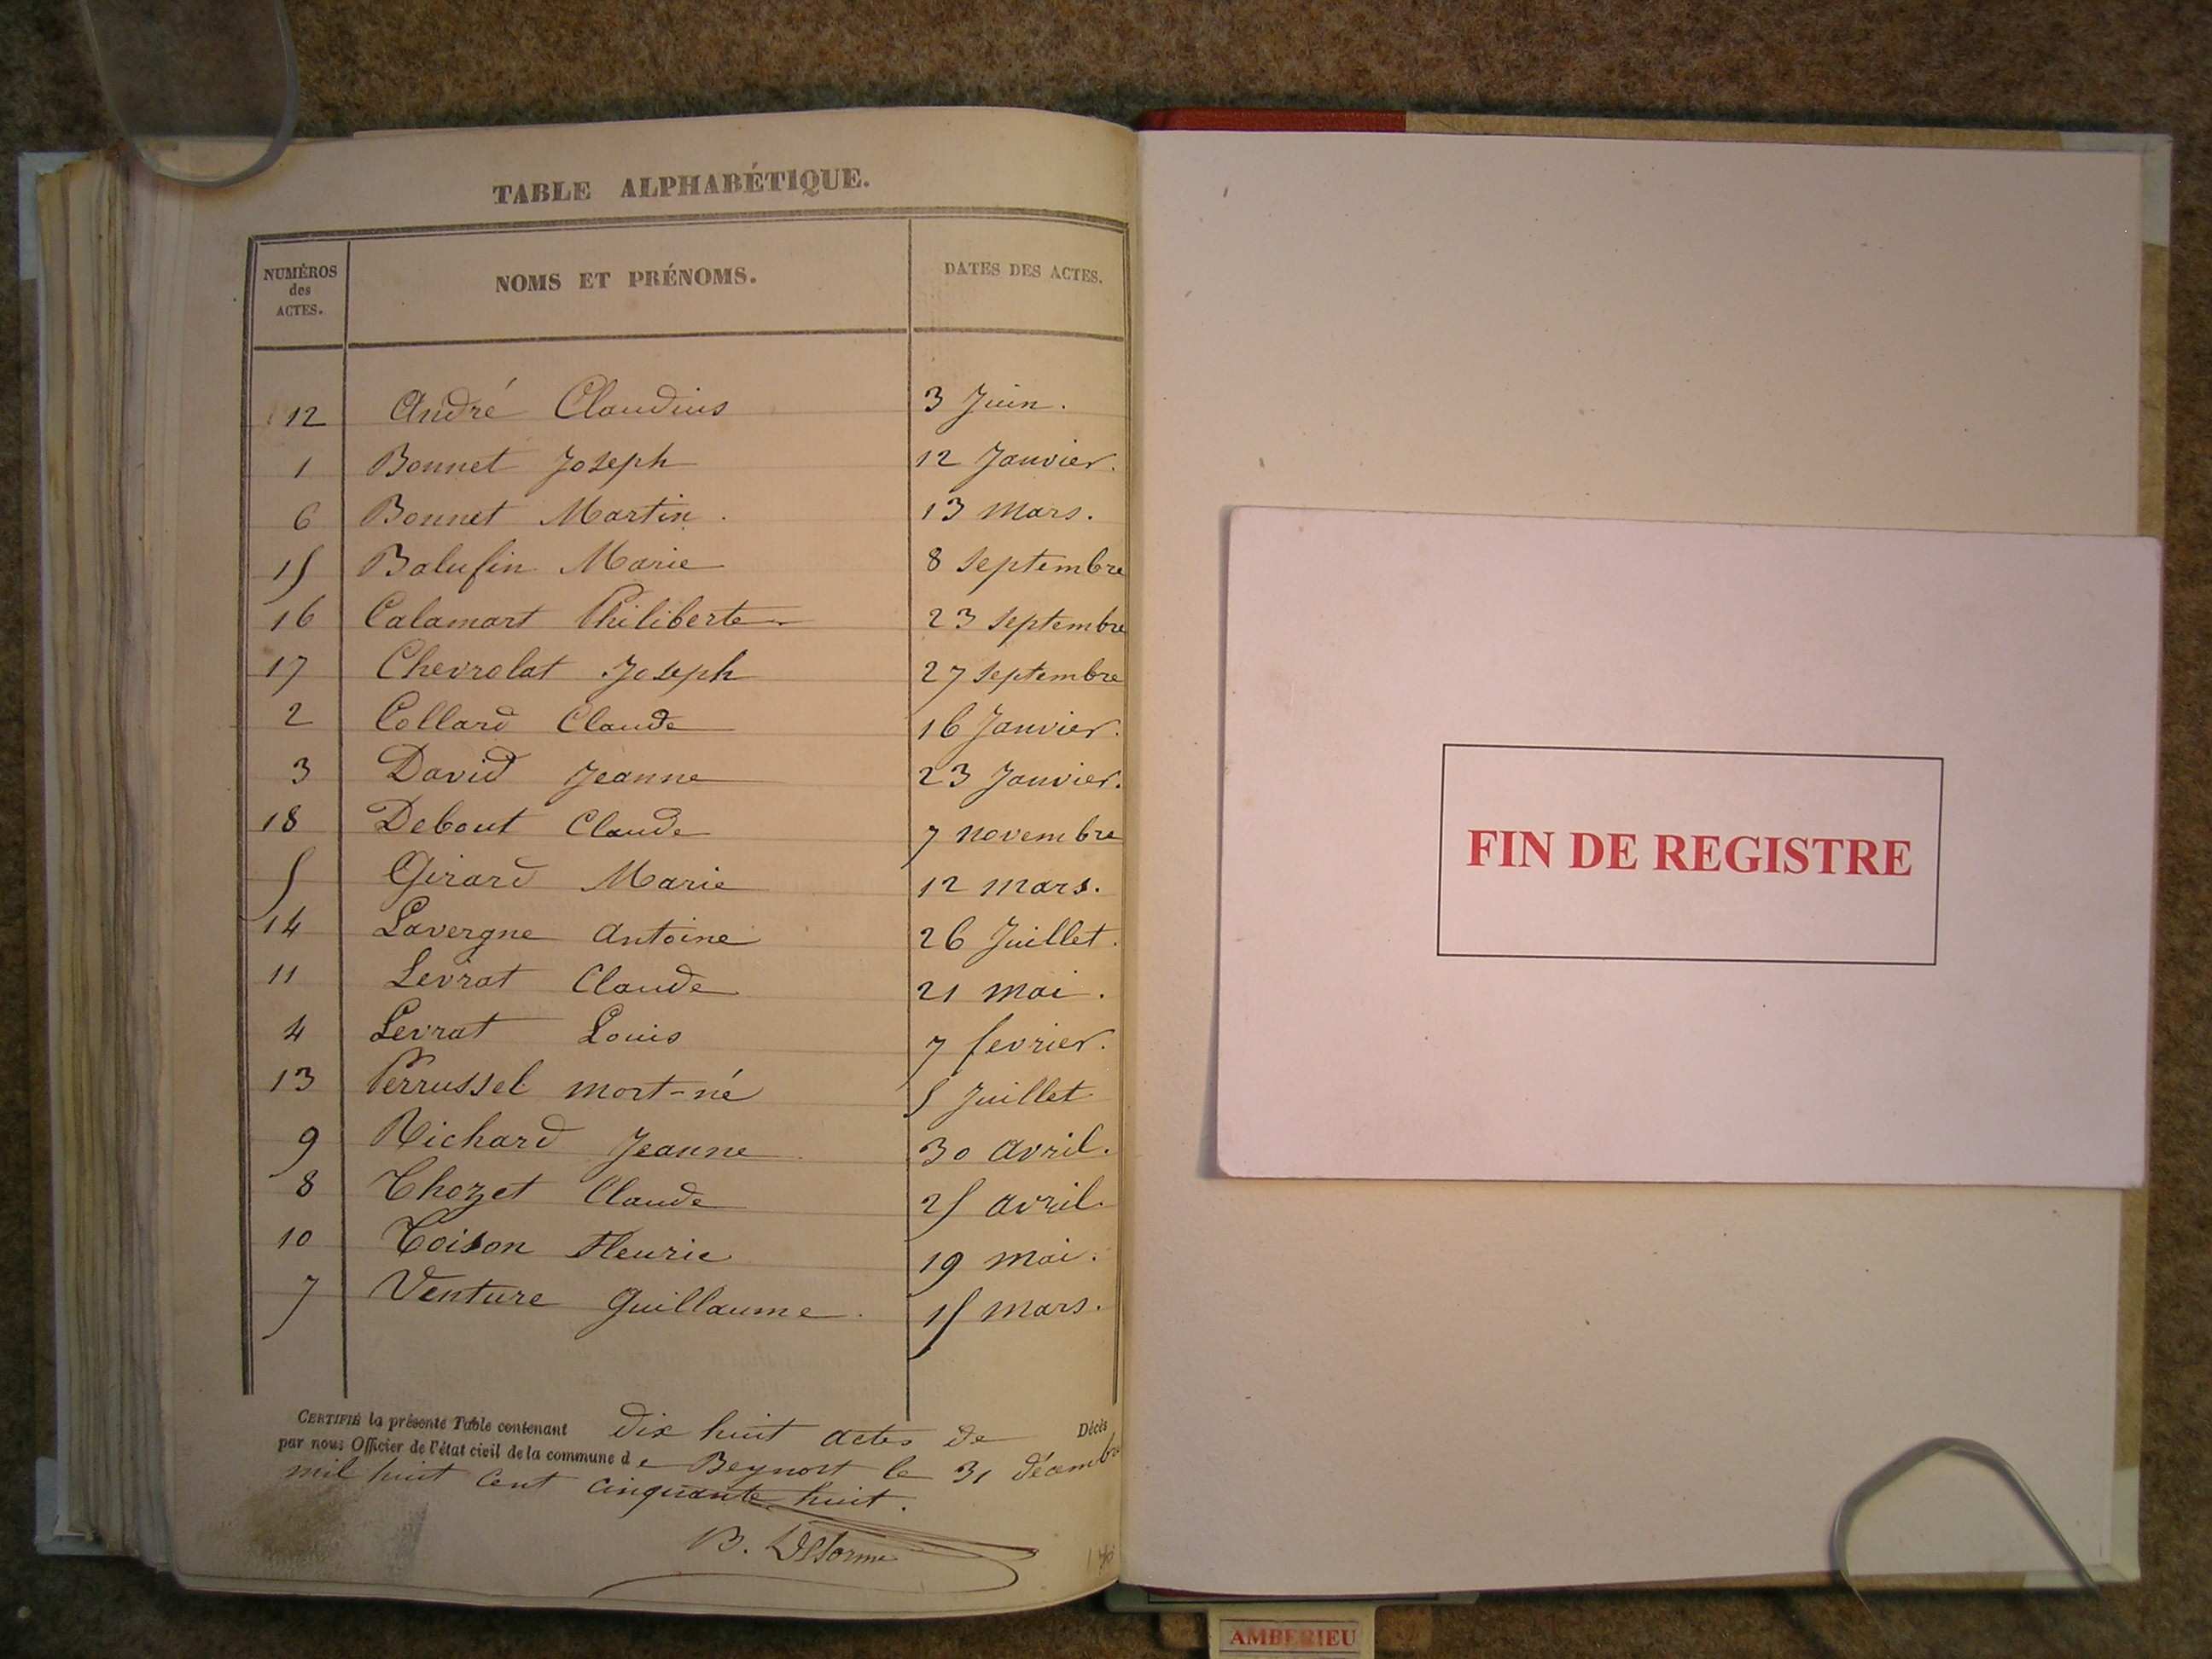 TABLE ALPHABÉTIQUE.
NUMÉROS des ACTES. NOMS ET PRÉNOMS. DATES DES ACTES.
12 André Claudius 3 Juin.
1 Bonnet Joseph 12 Janvier.
6 Bonnet Martin. 13 mars.
15 Balufin Marie 8 septembre
16 Calamart Philiberte 23 septembre
17 Chevrolat Joseph 27 septembre
2 Collard Claude 16 Janvier.
3 David Jeanne 23 Janvier.
18 Debout Claude 7 novembre
5 Girard Marie 12 mars.
14 Lavergne Antoine 26 Juillet.
11 Levrat Claude 21 mai.
4 Levrat Louis 7 fevrier.
13 Perrussel mort-né 5 Juillet
9 Richard Jeanne 30 avril.
8 Thozet Claude 25 avril.
10 Toison Fleurie 19 mai.
7 Venture Guillaume. 15 mars.
CERTIFIÉ la présente Table contenant Dix huit actes de Décès
par nous Officier de l'état civil de la commune de Beynost le 31 décembre
mil huit cent cinquante huit.
B. Delorme
FIN DE REGISTRE
AMBERIEU